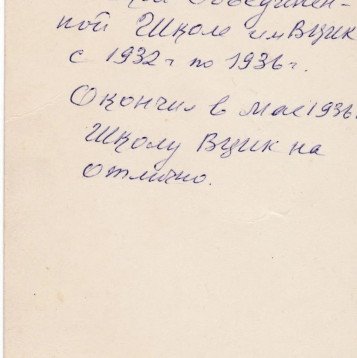 Объединен-
ной Школе им ВЦИК
с 1932 г по 1936 г.
Окончил в мае 1936
Школу ВЦИК на
отлично.